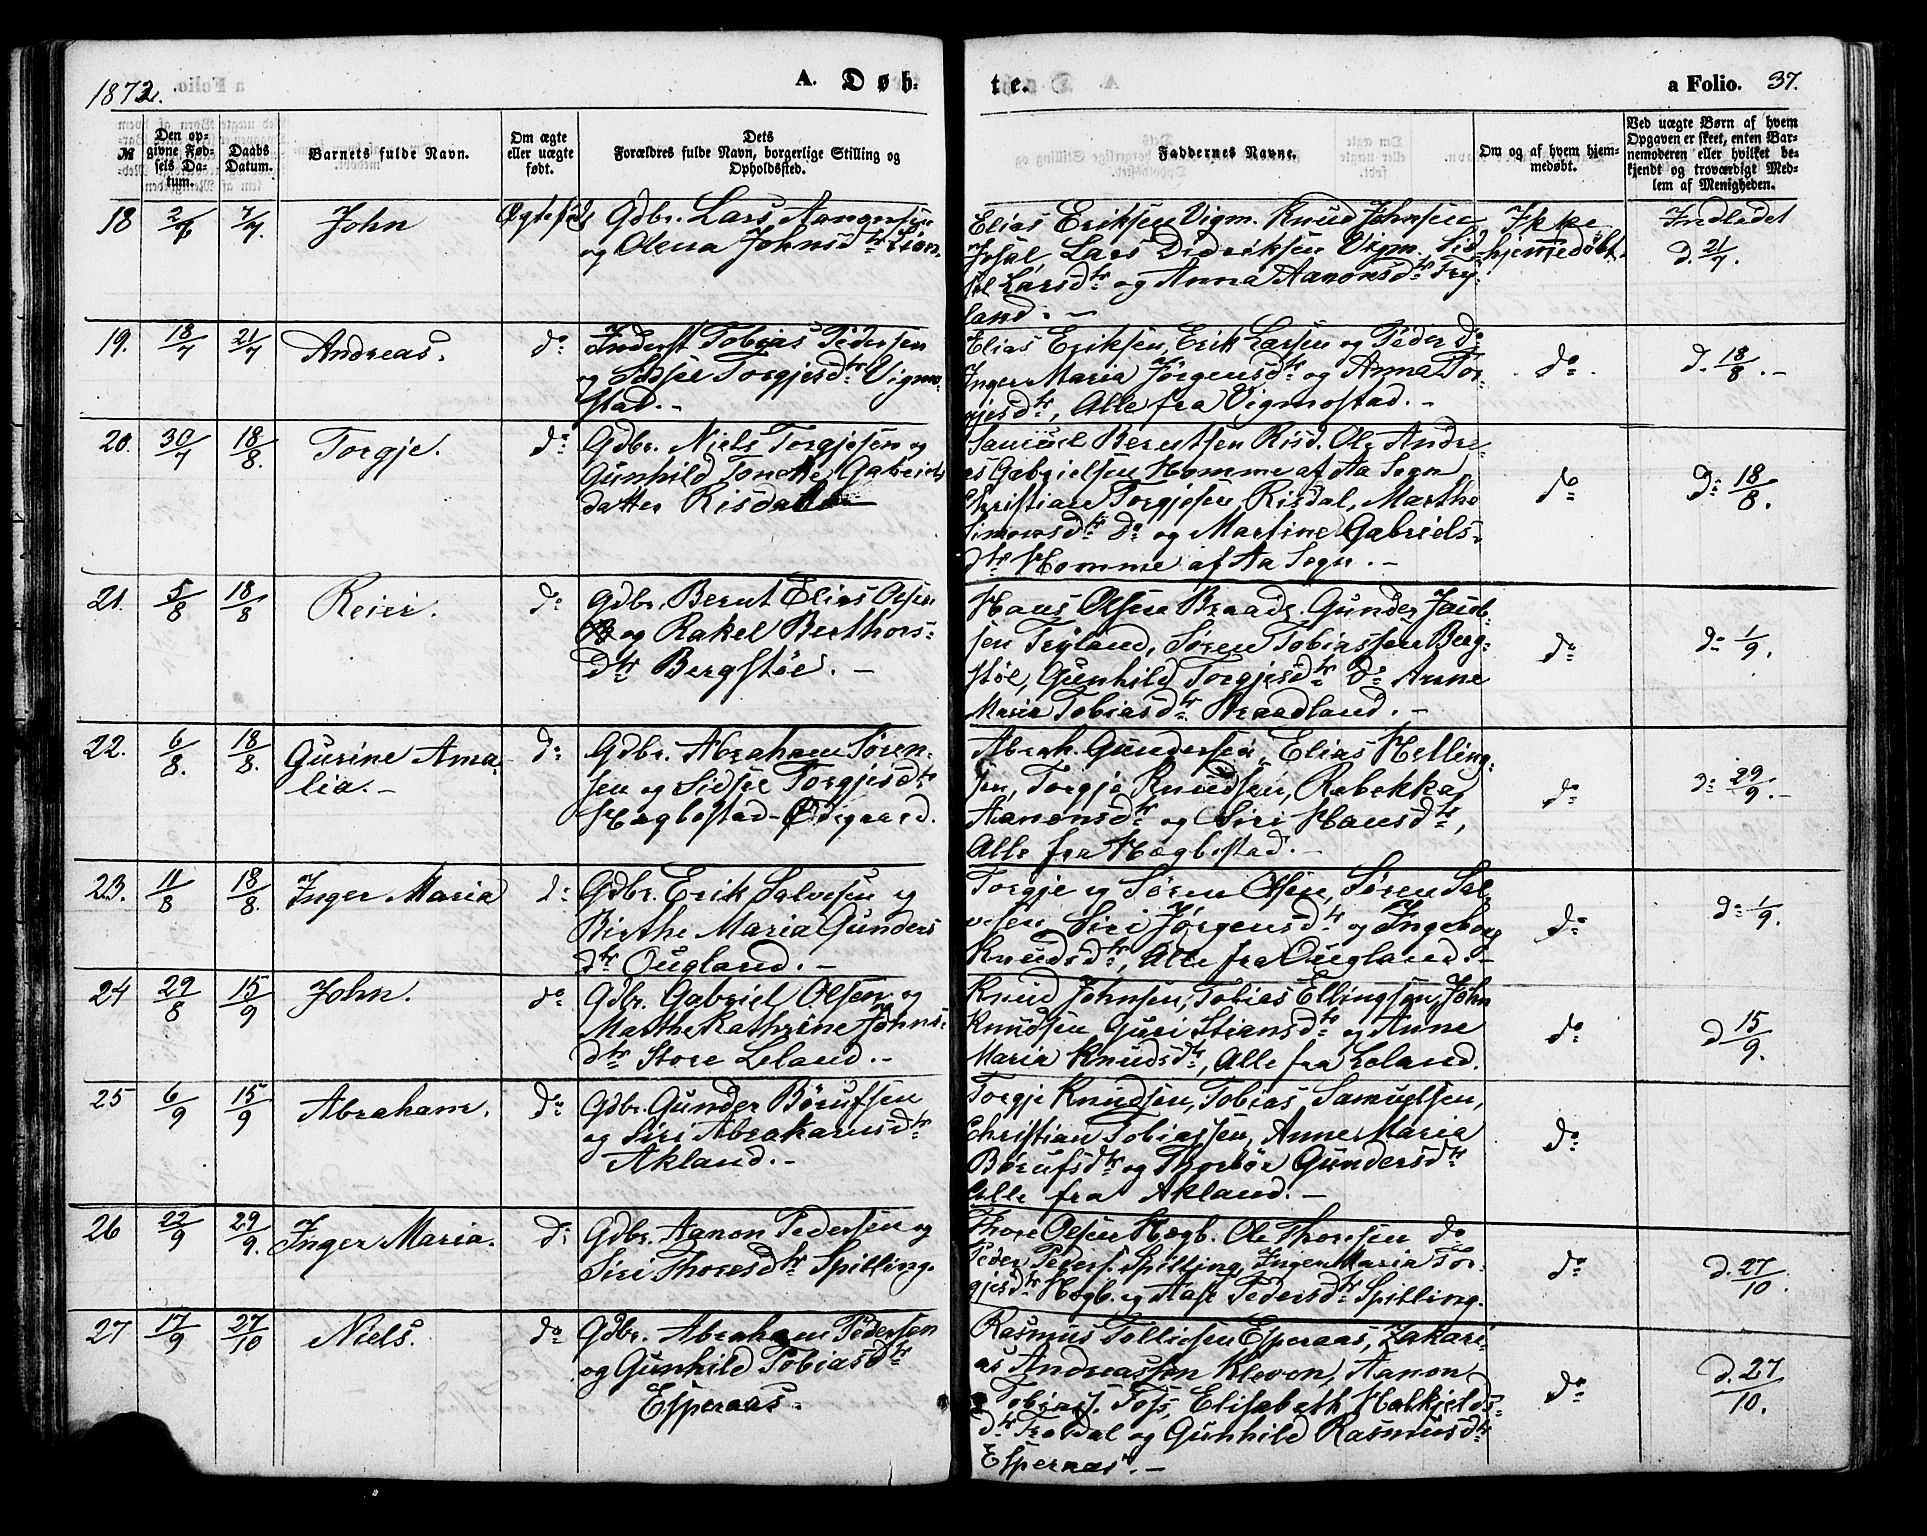 1872.
A. Døb-
te.
a Folio. 37.
№
Den opgivne Fødsels Datum.
Daabs Datum.
Barnets fulde Navn.
Om ægte eller uægte født.
Dets Forældres fulde Navn, borgerlige Stilling og Opholdssted.
Faddernes Navne.
Om og af hvem hjemmedøbt.
Ved uægte Børn af hvem Opgaven er skeet, enten Barnemoderen eller hvilket bekjendt og troværdigt Medlem af Menigheden.
18 2/6 7/7. John Ægtefød
Gdbr. Lars Aanonsen
og Olena Johnsdtr
Elias Eriksen Vigm. Knud Johnsen
Lars Didriksen Vigm. Sid-
sel Larsdtr og Anna Aanonsdtr Try-
land. -
Ikke
hjemmedøbt.
Indledet
d. 21/7.
19. 18/7 21/7 Andreas. do
Inderst Tobias Pedersen
og Sidsel Torgjesdtr Vigmo-
stad. -
Elias Eriksen, Erik Larsen og Peder do
Inger Maria Jørgensdtr og Anna Tor-
gjesdtr, Alle fra Vigmostad. -
do
d. 18/8. -
20. 30/7 18/8. Torgje. do
Gdbr. Niels Torgjesen og
Gunhild Tonette Gabriels
datter Risdal
Samuel Berntsen Risd. Ole Andre-
as Gabrielsen Homme af Aa Sogn
Christian Torgjesen Risdal, Marthe
Simonsdtr do og Martine Gabriels-
dtr Homme af Aa Sogn. -
do
d: 18/8.
21. 5/8 18/8 Reier. do
Gdbr. Bernt Elias Olsen
og Rakel Berthors-
dtr Bergstøl. -
Hans Olsen Braadl. Gunder Jacob-
sen Tryland, Søren Tobiassen Berg-
støl, Gunhild Torgjesdtr do Anne
Maria Tobiasdtr Braadland. -
do
d: 1/9.
22. 6/8. 18/8. Gurine Ama-
lia. - do
Gdbr. Abraham Søren-
sen og Sidsel Torgjesdtr
Hægbostad-Ødegaard.
Abrah. Gundersen, Elias Helling-
sen, Torgje Knudsen, Rebekka
Aanonsdtr og Siri Hansdtr,
Alle fra Hægbostad. -
do
d: 29/9. -
23. 11/8 18/8. Inger Maria do
Gdbr. Erik Salvesen og
Birthe Maria Gunders
dtr Ougland. -
Torgje og Søren Olsen, Søren Sal-
vesen, Siri Jørgensdtr og Ingeborg
Knudsdtr, Alle fra Ougland. -
do
d: 1/9.
24 29/8 15/9 John. do
Gdbr. Gabriel Olsen og
Marthe Kathrine Johns-
dtr Store Leland. -
Knud Johnsen, Tobias Ellingsen, John
Knudsen Guri Stiansdtr og Anne
Maria Knudsdtr, Alle fra Leland.
do
d 15/9.
25 6/9 15/9 Abraham. do
Gdbr. Gunder Børufsen
og Siri Abrahamsdtr
Akland. -
Torgje Knudsen, Tobias Samuelsen,
Christian Tobiassen, Anne Maria
Børufsdtr og Thorbør Gundersdtr
Alle fra Akland. -
do
26 22/9 29/9. Inger Maria. do
Gdbr. Aanon Pedersen og
Siri Thoresdtr Spilling.
Thore Olsen Hægb. Ole Thoresen do
Peder Peders. Spilling, Inger Maria Tor-
gjesdtr Hægb. og Aase Pedersdtr Spilling.
do
d. 27/10.
27 17/9 27/10 Niels. do
Gdbr. Abraham Pedersen
og Gunhild Tobiasdtr
Esperaas.
Rasmus Tollidsen Esperaas, Zakari-
as Andreassen Kleven, Aanon
Tobiass. Foss, Elisabeth Halkjelds-
dtr Tredal og Gunhild Rasmusdtr
Esperaas. -
do
d. 27/10.